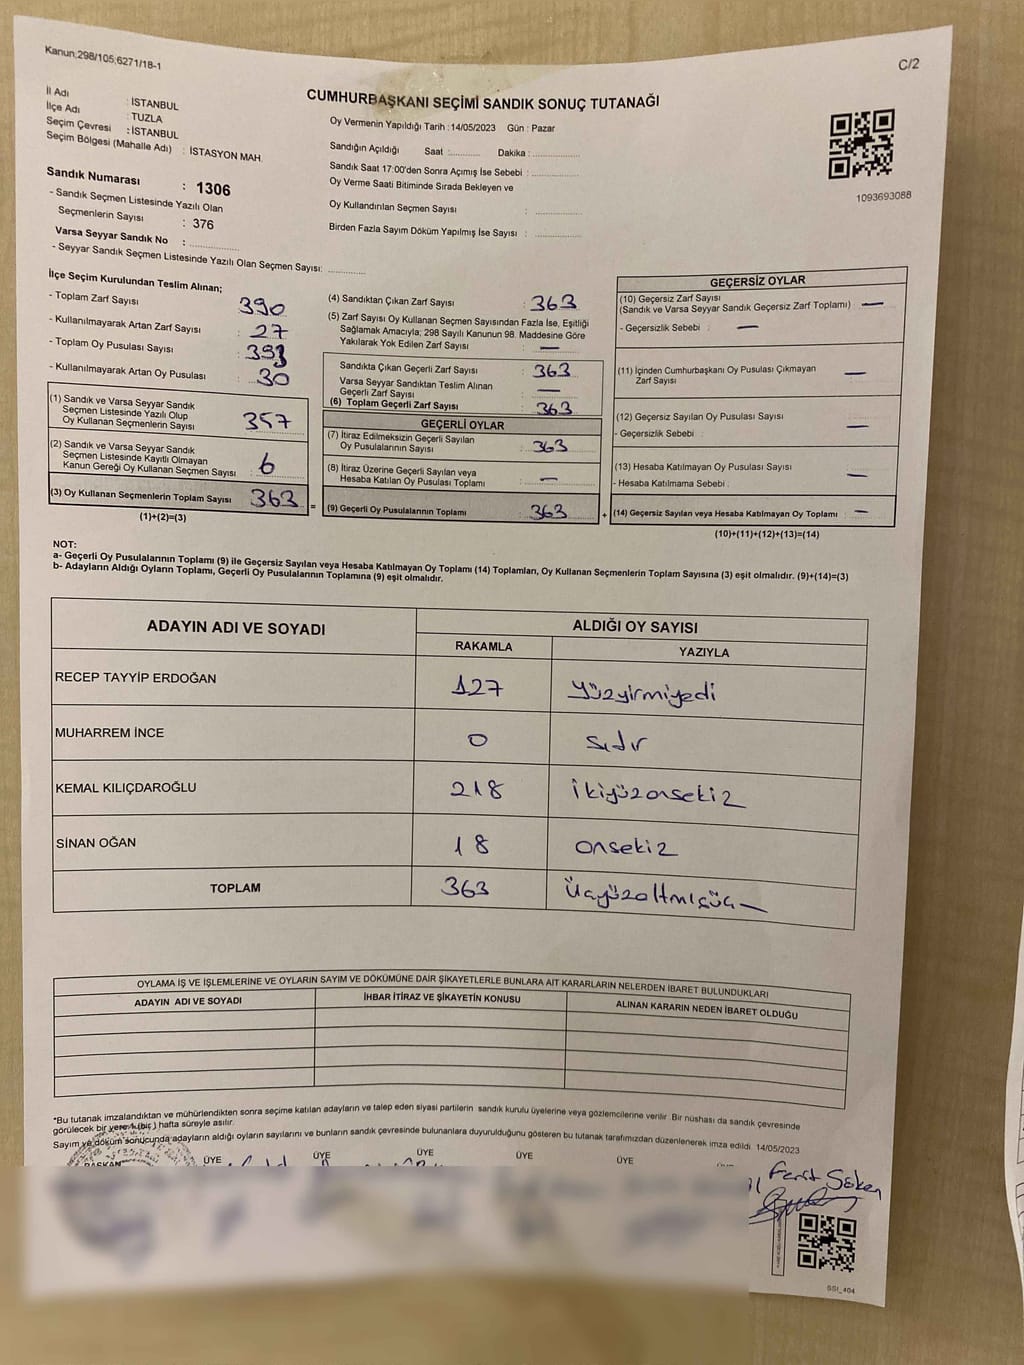 Kanun;298/105;6271/18-1
C/2
İl Adı : İSTANBUL
İlçe Adı : TUZLA
Seçim Çevresi : İSTANBUL
Seçim Bölgesi (Mahalle Adı) : İSTASYON MAH.
CUMHURBAŞKANI SEÇİMİ SANDIK SONUÇ TUTANAĞI
Oy Vermenin Yapıldığı Tarih :14/05/2023 Gün : Pazar
Sandığın Açıldığı Saat :........... Dakika :................
Sandık Saat 17:00'den Sonra Açımış İse Sebebi :................
Oy Verme Saati Bitiminde Sırada Bekleyen ve
Oy Kullandırılan Seçmen Sayısı :................
Birden Fazla Sayım Döküm Yapılmış İse Sayısı :................
1093693088
Sandık Numarası : 1306
- Sandık Seçmen Listesinde Yazılı Olan
Seçmenlerin Sayısı : 376
Varsa Seyyar Sandık No :................
- Seyyar Sandık Seçmen Listesinde Yazılı Olan Seçmen Sayısı:.............
İlçe Seçim Kurulundan Teslim Alınan;
- Toplam Zarf Sayısı : 390
- Kullanılmayarak Artan Zarf Sayısı : 27
- Toplam Oy Pusulası Sayısı : 393
- Kullanılmayarak Artan Oy Pusulası : 30
(1) Sandık ve Varsa Seyyar Sandık
Seçmen Listesinde Yazılı Olup
Oy Kullanan Seçmenlerin Sayısı : 357
(2) Sandık ve Varsa Seyyar Sandık
Seçmen Listesinde Kayıtlı Olmayan
Kanun Gereği Oy Kullanan Seçmen Sayısı : 6
(3) Oy Kullanan Seçmenlerin Toplam Sayısı : 363
(1)+(2)=(3)
(4) Sandıktan Çıkan Zarf Sayısı : 363
(5) Zarf Sayısı Oy Kullanan Seçmen Sayısından Fazla İse, Eşitliği
Sağlamak Amacıyla; 298 Sayılı Kanunun 98. Maddesine Göre
Yakılarak Yok Edilen Zarf Sayısı : —
Sandıkta Çıkan Geçerli Zarf Sayısı : 363
Varsa Seyyar Sandıktan Teslim Alınan
Geçerli Zarf Sayısı : —
(6) Toplam Geçerli Zarf Sayısı : 363
GEÇERLİ OYLAR
(7) İtiraz Edilmeksizin Geçerli Sayılan
Oy Pusulalarının Sayısı : 363
(8) İtiraz Üzerine Geçerli Sayılan veya
Hesaba Katılan Oy Pusulası Toplamı : —
= (9) Geçerli Oy Pusulalarının Toplamı : 363
GEÇERSİZ OYLAR
(10) Geçersiz Zarf Sayısı
(Sandık ve Varsa Seyyar Sandık Geçersiz Zarf Toplamı) : —
- Geçersizlik Sebebi : —
(11) İçinden Cumhurbaşkanı Oy Pusulası Çıkmayan
Zarf Sayısı : —
(12) Geçersiz Sayılan Oy Pusulası Sayısı : —
- Geçersizlik Sebebi :
(13) Hesaba Katılmayan Oy Pusulası Sayısı : —
- Hesaba Katılmama Sebebi :
+ (14) Geçersiz Sayılan veya Hesaba Katılmayan Oy Toplamı : —
(10)+(11)+(12)+(13)=(14)
NOT:
a- Geçerli Oy Pusulalarının Toplamı (9) ile Geçersiz Sayılan veya Hesaba Katılmayan Oy Toplamı (14) Toplamları, Oy Kullanan Seçmenlerin Toplam Sayısına (3) eşit olmalıdır. (9)+(14)=(3)
b- Adayların Aldığı Oyların Toplamı, Geçerli Oy Pusulalarının Toplamına (9) eşit olmalıdır.
ADAYIN ADI VE SOYADI ALDIĞI OY SAYISI
RAKAMLA YAZIYLA
RECEP TAYYİP ERDOĞAN 127 yüzyirmiyedi
MUHARREM İNCE 0 sıfır
KEMAL KILIÇDAROĞLU 218 ikiyüzonsekiz
SİNAN OĞAN 18 onsekiz
TOPLAM 363 üçyüzaltmışüç
OYLAMA İŞ VE İŞLEMLERİNE VE OYLARIN SAYIM VE DÖKÜMÜNE DAİR ŞİKAYETLERLE BUNLARA AİT KARARLARIN NELERDEN İBARET BULUNDUKLARI
ADAYIN ADI VE SOYADI İHBAR İTİRAZ VE ŞİKAYETİN KONUSU ALINAN KARARIN NEDEN İBARET OLDUĞU
*Bu tutanak imzalandıktan ve mühürlendikten sonra seçime katılan adayların ve talep eden siyasi partilerin sandık kurulu üyelerine veya gözlemcilerine verilir. Bir nüshası da sandık çevresinde
görülecek bir yere 1 (bir) hafta süreyle asılır.
Sayım ve döküm sonucunda adayların aldığı oyların sayılarını ve bunların sandık çevresinde bulunanlara duyurulduğunu gösteren bu tutanak tarafımızdan düzenlenerek imza edildi. 14/05/2023
BAŞKAN ÜYE ÜYE ÜYE ÜYE ÜYE
Ferit Söken
SSI_404